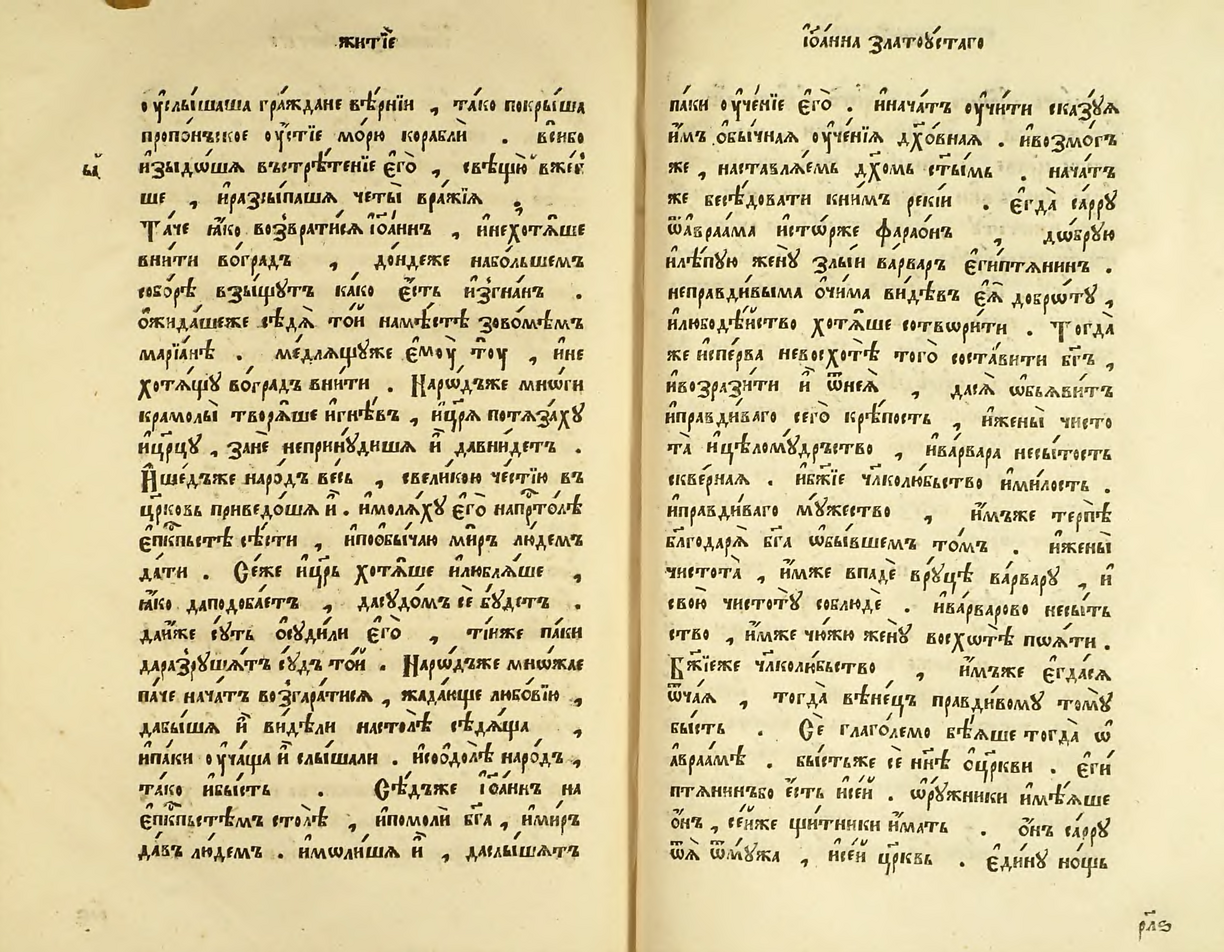 житїе
оу҆слы́шаша гра́ждане вѣ́рнїи , та́ко покры́ша
пропо́ньское оу҆́стїе мо́рю корабли̑ . вси́бо
и҆зыдо́шѧ въстрѣ́тенїе є҆го̀ , свѣщю̀ вже́г
ы҆́
ше , и҆разсы́пашѧ четы̀ вра́жїѧ .
Та́че ꙗ҆́ко возврати́сѧ і҆ѡа́ннъ , и҆нехотѧ́ше
вни́ти во́градъ , до́ндеже набо́льшемъ
собо́рѣ взы́щꙋтъ ка́ко є҆́сть и҆згна́нъ .
ѻ҆жида́шеже сѣдѧ̀ то́й намѣ́стѣ зово́мѣмъ
марїа́нѣ . ме́длѧщꙋже є҆моу̀ тоу̀ , и҆не
хотѧ́щꙋ во́градъ вни́ти . Наро́дъже мно́ги
крамолы̀ творѧ́ше и҆гнѣ́въ , и҆цр҃ѧ̀ потѧза́хꙋ
и҆цр҃цꙋ , занѐ непринꙋ́дишѧ и҆̀ давни́детъ .
И҆ше́дъже наро́дъ ве́сь , свели́кою че́стїю въ
цр҃ковь приведо́шѧ и҆̀ . и҆молѧ́хꙋ є҆го̀ напр҃то́лѣ
є҆пк҃пьстѣ сѣ́сти , и҆поѡбы́чаю ми́ръ лю́демъ
да́ти . Се́же и҆цр҃ь хотѧ́ше и҆люблѧ́ше ,
ꙗ҆́ко даподоба́етъ , дасꙋдо́мъ сѐ бꙋ́детъ .
да́и҆же сꙋ́ть ѡ҆сꙋди́ли є҆го̀ , ті́иже па́ки
даразрꙋ́шѧтъ сꙋ́дъ то́й . Наро́дъже мно́жае
па́че нача́тъ возгара́тисѧ , жада́юще любо́вїю ,
дабы́шѧ и҆̀ ви́дѣли насто́лѣ сѣдѧ́ща ,
и҆па́ки оу҆ча́ща и҆̀ слы́шали . и҆ѡ҆долѣ̀ наро́дъ ,
та́ко и҆бы́сть . Сѣ́дъже і҆ѡа́ннъ на
є҆пк҃пьстѣмъ столѣ̀ , и҆помолѝ бг҃а , и҆ми́ръ
да́въ лю́демъ . и҆моли́шѧ и҆̀ , даслы́шѧтъ
і҆ѡа́нна златоꙋ́стаго
па́ки оу҆че́нїе є҆го̀ . и҆нача́тъ оу҆чи́ти сказꙋ́ѧ
и҆̀мъ ѻ҆бы́чнаѧ оу҆че́нїѧ дх҃о́внаѧ . и҆возмо́гъ
же , наставлѧ́емь дх҃омь ст҃ы́мь . нача́тъ
же бесѣ́довати кни́мъ рекі́и . є҆гда̀ са́ррꙋ
ѿа҆враа́ма и҆сто́рже фарао́нъ , до́брꙋю
и҆лѣ́пꙋю женꙋ̀ злы́и ва́рваръ є҆ги́птѧнинъ .
непра́вдивыма ѻ҆чи́ма ви́дѣвъ є҆ѧ̀ добро́тꙋ ,
и҆любодѣ́йство хотѧ́ше сотвори́ти . Тогда́
же и҆спе́рва невосхотѣ̀ того̀ соста́вити бг҃ъ ,
и҆возрази́ти и҆̀ ѿнеѧ̀ , дасѧ̀ ѡ҆бьѧ́витъ
и҆пра́вдиваго сего̀ крѣ́пость , и҆жены̀ чисто
та̀ и҆цѣломꙋ́дрьство , и҆ва́рвара несы́тость
скве́рнаѧ . и҆бж҃їе чл҃колю́бьство и҆ми́лость .
и҆пра́вдиваго мꙋ́жество , и҆́мъже терпѣ̀
бл҃годарѧ̀ бг҃а ѡ҆бы́вшемъ то́мъ . и҆жены̀
чистота̀ , и҆́мже впадѐ врꙋ́цѣ ва́рварꙋ , и҆
свою̀ чистотꙋ̀ соблюдѐ . и҆ва́рварово несы́ть
ство , и҆́мже чю́жю женꙋ̀ восхотѣ̀ поѧ́ти .
Бж҃їеже чл҃коли́бьство , и҆́мъже є҆гда́сѧ
ѿча́ѧ , тогда̀ вѣне́цъ пра́вдивомꙋ томꙋ̀
бы́сть . Сѐ глаго́лемо бѣѧ́ше тогда̀ ѡ
авраа́мѣ . бы́стьже сѐ нн҃ѣ ѻ҆цр҃кви . є҆ги́
птѧнинъбо є҆́сть и҆се́й . ѡ҆рꙋ́жники и҆мѣѧ́ше
ѻ҆́нъ , се́йже щи́тники и҆́мать . ѻ҆́нъ са́ррꙋ
ѿѧ̀ ѿмꙋ́жа , и҆се́й цр҃квь . є҆ди́нꙋ но́щь
рл҃ѕ